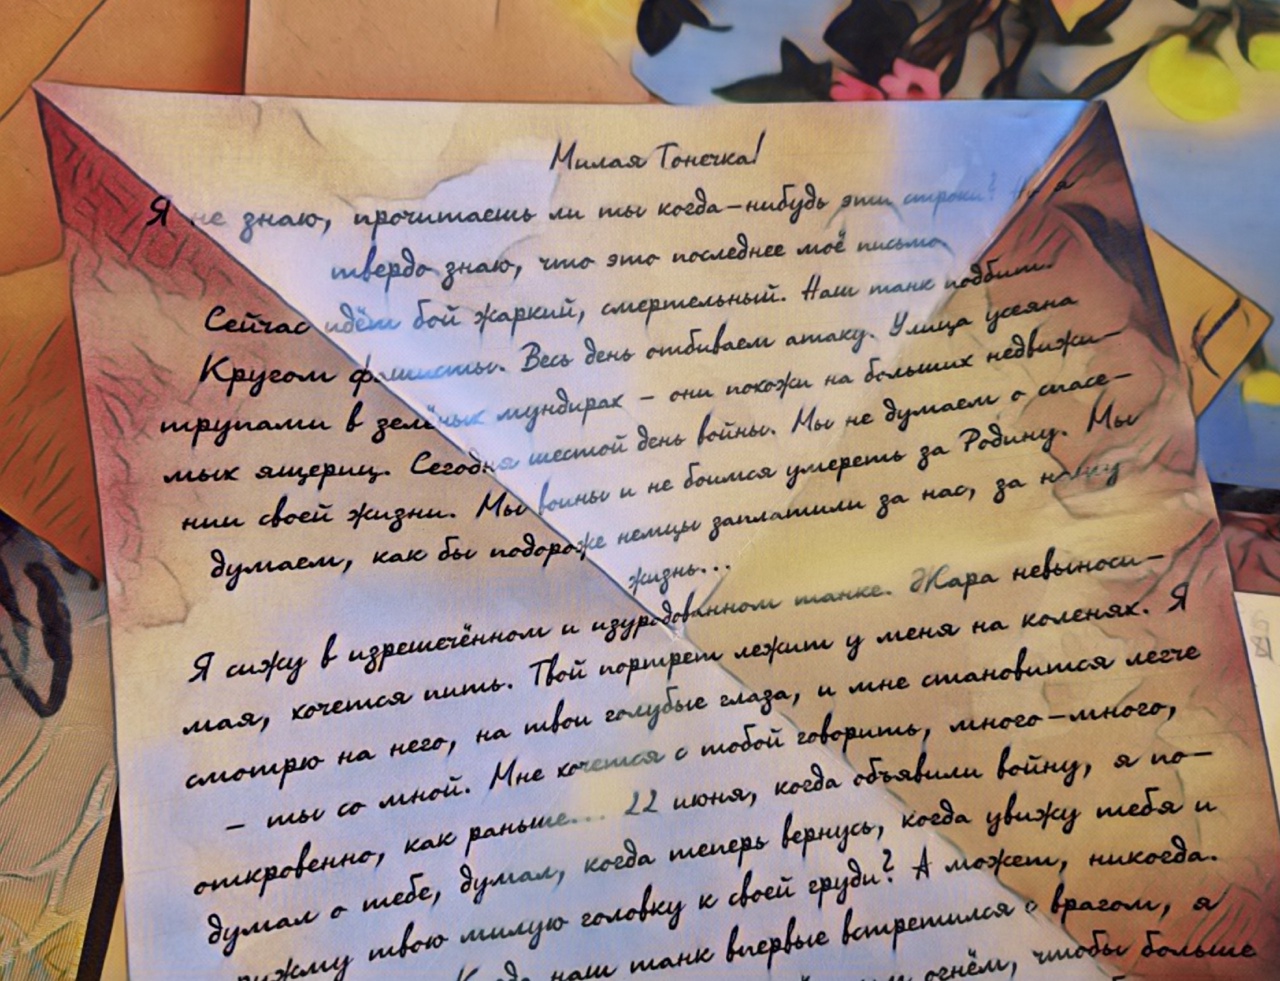 Милая Тонечка!
Я не знаю, прочитаешь ли ты когда-нибудь эти строки? Но я
твердо знаю, что это последнее моё письмо.
Сейчас идёт бой жаркий, смертельный. Наш танк подбит.
Кругом фашисты. Весь день отбиваем атаку. Улица усеяна
трупами в зелёных мундирах – они похожи на больших недвижи-
мых ящериц. Сегодня шестой день войны. Мы не думаем о спасе-
нии своей жизни. Мы воины и не боимся умереть за Родину. Мы
думаем, как бы подороже немцы заплатили за нас, за нашу
жизнь...
Я сижу в изрешечённом и изуродованном танке. Жара невыноси-
мая, хочется пить. Твой портрет лежит у меня на коленях. Я
смотрю на него, на твои голубые глаза, и мне становится легче
– ты со мной. Мне хочется с тобой говорить, много-много,
откровенно, как раньше... 22 июня, когда объявили войну, я по-
думал о тебе, думал, когда теперь вернусь, когда увижу тебя и
прижму твою милую головку к своей груди? А может, никогда.
наш танк впервые встретился с врагом, я
огнём, чтобы больше